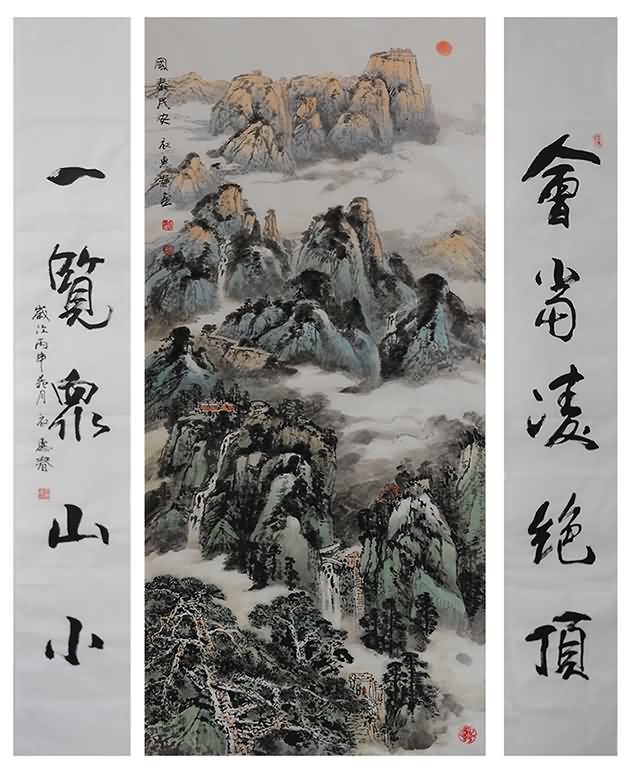 會當凌絕頂
國泰民安
一覽眾山小
歲次丙申 月